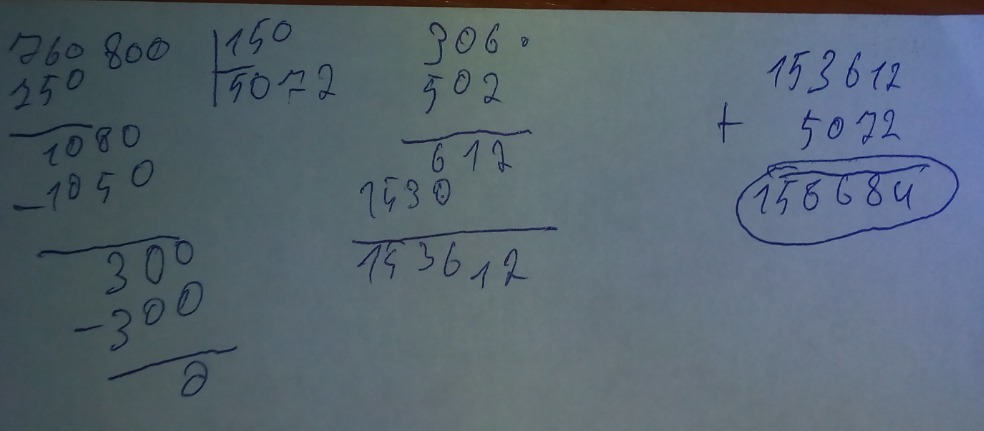 760 800 150
750 5072
1080
-1050
300
-300
0
306 .
502
612
1530
153612
153612
+ 5072
158684